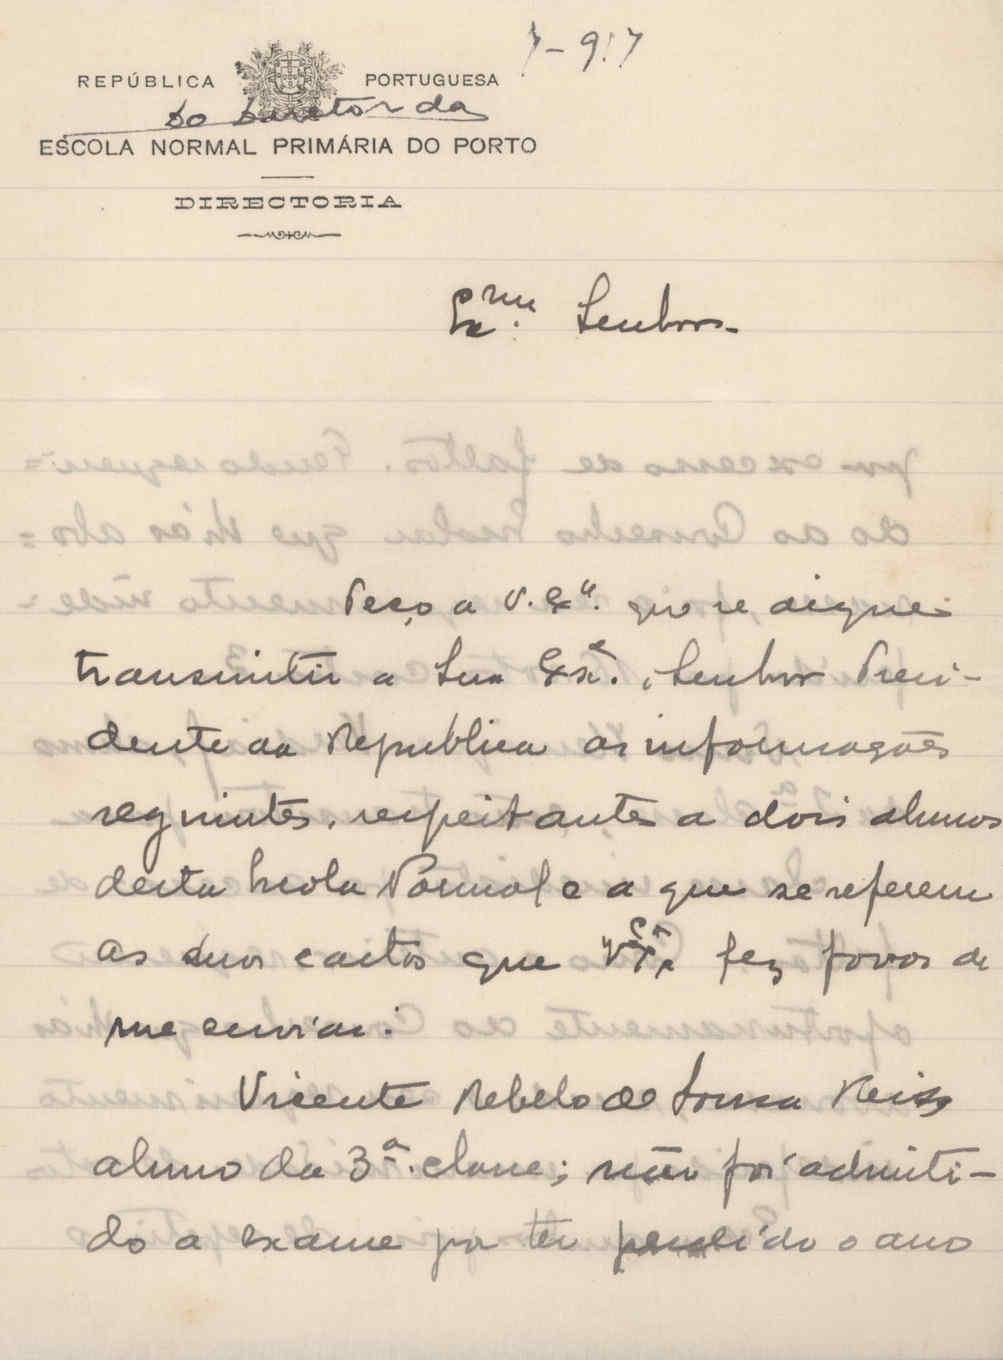 7-917
REPÚBLICA PORTUGUESA
Do Director da
ESCOLA NORMAL PRIMÁRIA DO PORTO
DIRECTORIA
Exmo. Senhor
Peço a V. Exa. que se digne
transmitir a Sua Exa. o Senhor Presi-
dente da Republica as informações
seguintes, respeitantes a dois alunos
desta Escola Normal e a que se referem
as duas cartas que V. Exa. fez favor de
me enviar:
Vicente Rebelo de Sousa Reis
aluno da 3a. classe; não foi admiti-
do a exame por ter perdido o ano